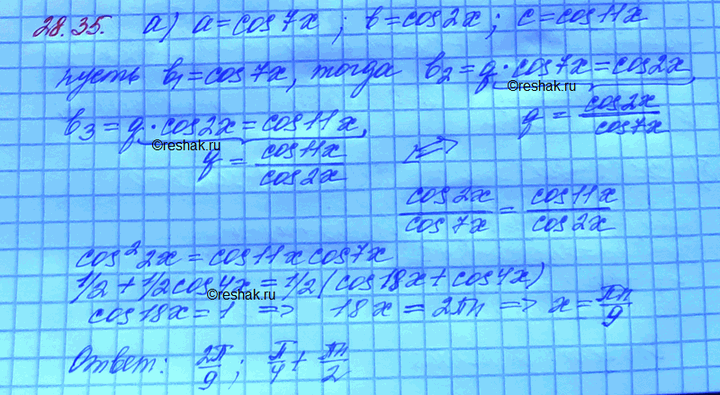 28.35. а) a=cos7x; b=cos2x; c=cos11x
пусть b₁=cos7x, тогда b₂=q·cos7x=cos2x,
©reshak.ru
b₃=q·cos2x=cos11x, q=cos2x/cos7x
©reshak.ru
q=cos11x/cos2x <=>
cos2x/cos7x=cos11x/cos2x
cos²2x=cos11x cos7x
1/2+1/2cos4x=1/2(cos18x+cos4x)
©reshak.ru
cos18x=1 => 18x=2πn => x=πn/9
Ответ: 2π/9; π/4+πn/2